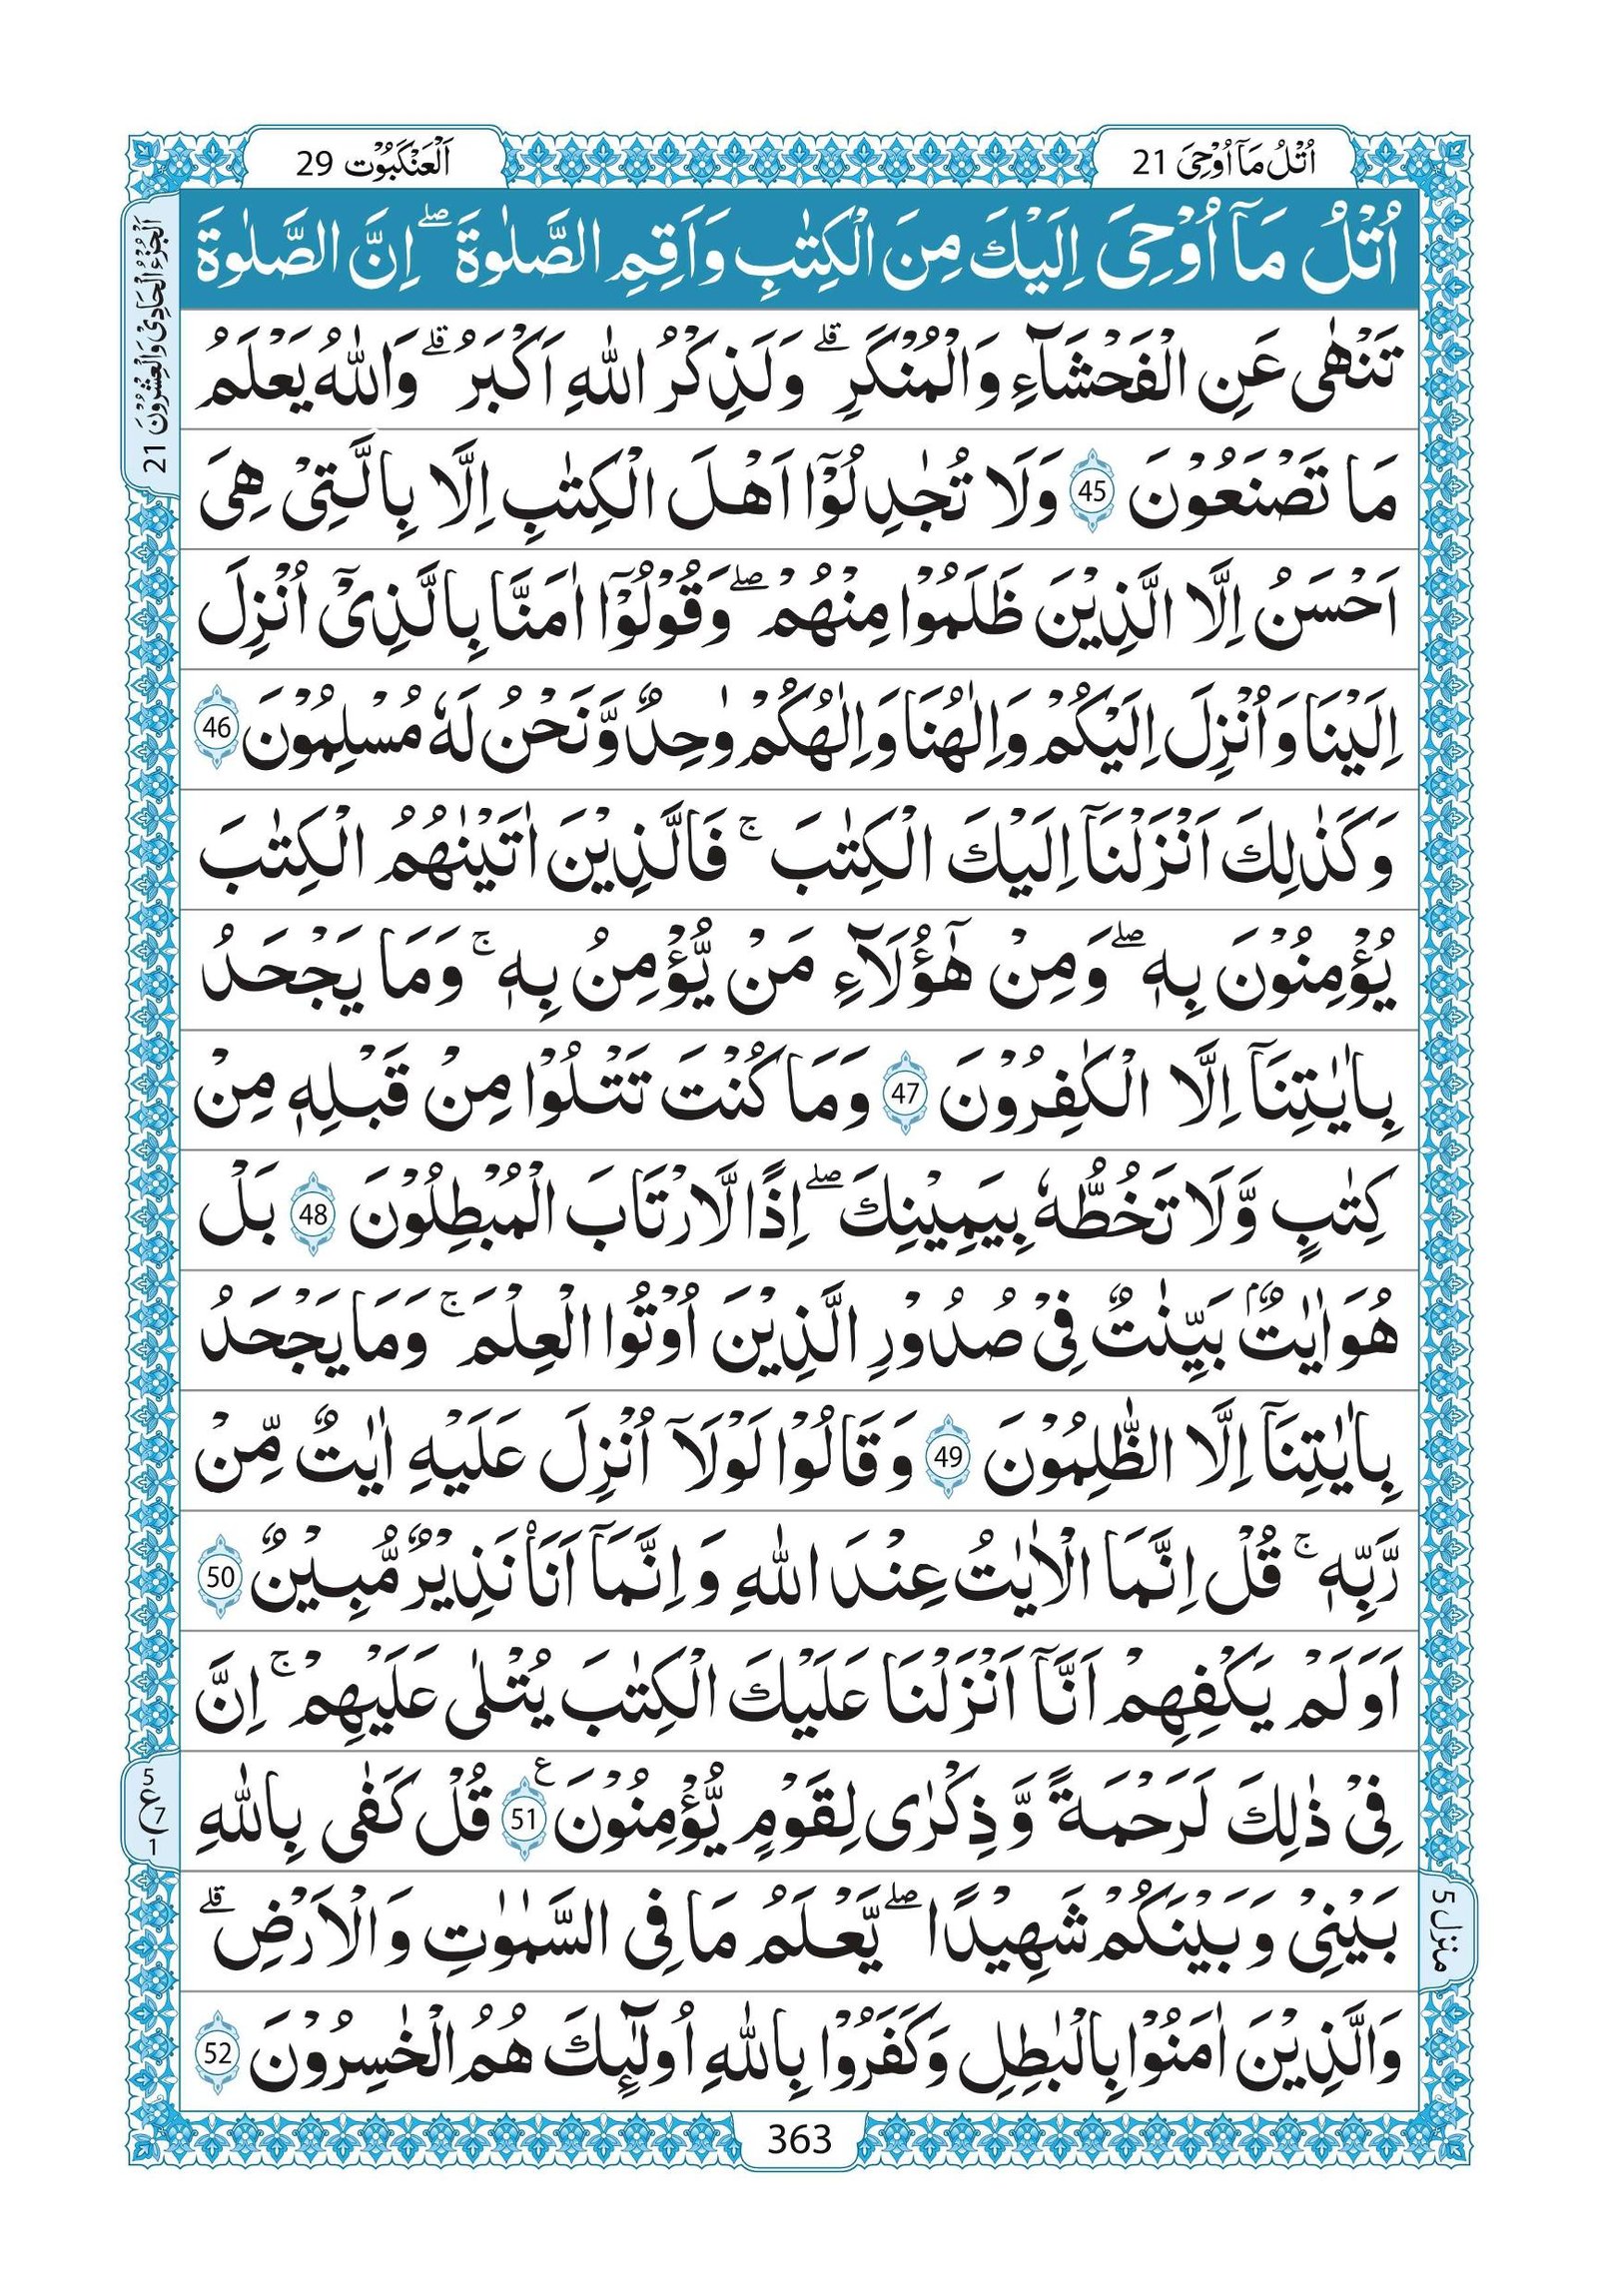 اُتْلُ مَاۤ اُوْحِیَ 21
اَلْعَنْكَبُوْت 29
اَلْجُزْءُ الْحَادِیْ وَالْعِشْرُوْنَ 21
اُتْلُ مَاۤ اُوْحِیَ اِلَیْكَ مِنَ الْكِتٰبِ وَاَقِمِ الصَّلٰوةَ ۖ اِنَّ الصَّلٰوةَ
تَنْهٰی عَنِ الْفَحْشَآءِ وَالْمُنْكَرِ ۗ وَلَذِكْرُ اللّٰهِ اَكْبَرُ ۗ وَاللّٰهُ یَعْلَمُ
مَا تَصْنَعُوْنَ 45 وَلَا تُجٰدِلُوْۤا اَهْلَ الْكِتٰبِ اِلَّا بِالَّتِیْ هِیَ
اَحْسَنُ اِلَّا الَّذِیْنَ ظَلَمُوْا مِنْهُمْ ۖ وَقُوْلُوْۤا اٰمَنَّا بِالَّذِیْۤ اُنْزِلَ
اِلَیْنَا وَاُنْزِلَ اِلَیْكُمْ وَاِلٰهُنَا وَاِلٰهُكُمْ وٰحِدٌ وَّنَحْنُ لَهٗ مُسْلِمُوْنَ 46
وَكَذٰلِكَ اَنْزَلْنَاۤ اِلَیْكَ الْكِتٰبَ ۚ فَالَّذِیْنَ اٰتَیْنٰهُمُ الْكِتٰبَ
یُؤْمِنُوْنَ بِهٖ ۖ وَمِنْ هٰۤؤُلَآءِ مَنْ یُّؤْمِنُ بِهٖ ۚ وَمَا یَجْحَدُ
بِاٰیٰتِنَاۤ اِلَّا الْكٰفِرُوْنَ 47 وَمَا كُنْتَ تَتْلُوْا مِنْ قَبْلِهٖ مِنْ
كِتٰبٍ وَّلَا تَخُطُّهٗ بِیَمِیْنِكَ ۖ اِذًا لَّارْتَابَ الْمُبْطِلُوْنَ 48 بَلْ
هُوَ اٰیٰتٌۢ بَیِّنٰتٌ فِیْ صُدُوْرِ الَّذِیْنَ اُوْتُوا الْعِلْمَ ۚ وَمَا یَجْحَدُ
بِاٰیٰتِنَاۤ اِلَّا الظّٰلِمُوْنَ 49 وَقَالُوْا لَوْلَاۤ اُنْزِلَ عَلَیْهِ اٰیٰتٌ مِّنْ
رَّبِّهٖ ۚ قُلْ اِنَّمَا الْاٰیٰتُ عِنْدَ اللّٰهِ وَاِنَّمَاۤ اَنَا۠ نَذِیْرٌ مُّبِیْنٌ 50
اَوَلَمْ یَكْفِهِمْ اَنَّاۤ اَنْزَلْنَا عَلَیْكَ الْكِتٰبَ یُتْلٰی عَلَیْهِمْ ۚ اِنَّ
فِیْ ذٰلِكَ لَرَحْمَةً وَّذِكْرٰی لِقَوْمٍ یُّؤْمِنُوْنَ 51 ع قُلْ كَفٰی بِاللّٰهِ
بَیْنِیْ وَبَیْنَكُمْ شَهِیْدًا ۖ یَّعْلَمُ مَا فِی السَّمٰوٰتِ وَالْاَرْضِ ۗ
وَالَّذِیْنَ اٰمَنُوْا بِالْبٰطِلِ وَكَفَرُوْا بِاللّٰهِ اُولٰٓئِكَ هُمُ الْخٰسِرُوْنَ 52
5
ع 7
1
منزل 5
363